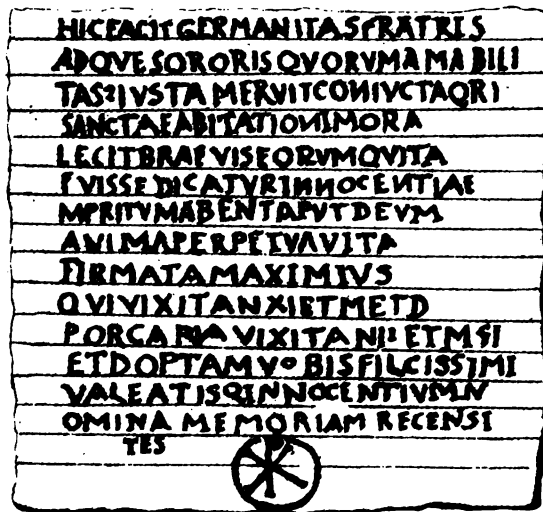 HICEACITGERMANITASFRATRIS
ADQVESORORISQVORVMAMABILI
TASIVSTAMERVITCONIVCTAQRI
SANCTAEABITATIONIMORA
LEGITBRAEVISEORVMQVITA
FVISSEDICATVRINNOCENTIAE
MERITVMABENTAPVTDEVM
ANIMAPERPETVAVITA
FIRMATAMAXIMIVS
QVIVIXITANXIETMETD
PORCARIAVIXITANIIETMSI
ETDOPTAMVOBISFILCISSIMI
VALEATISQINNOCENTIVMN
OMINAMEMORIAMRECENSI
TES